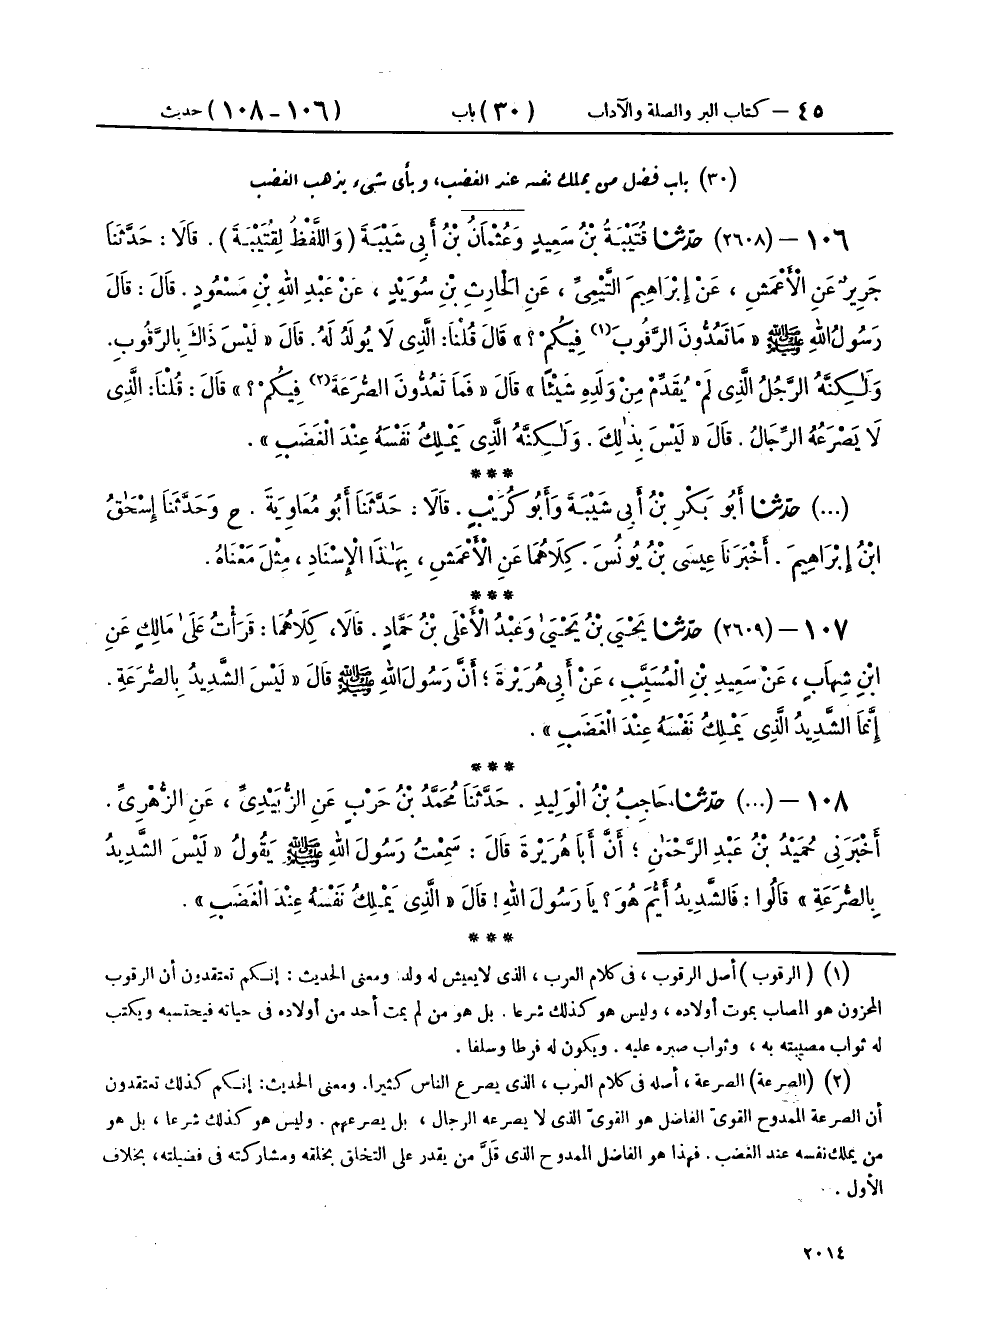 ٤٥ – كتاب البر والصلة والآداب (٣٠) باب (١٠٦–١٠٨) حديث
(٣٠) باب فضل من يملك نفسه عند الغضب، وبأى شىء يذهب الغضب
١٠٦ – (٢٦٠٨) حدّثنا قُتَيْبَةُ بْنُ سَعِيدٍ وَعُثْمَانُ بْنُ أَبِى شَيْبَةَ (وَاللَّفْظُ لِقُتَيْبَةَ). قَالَا: حَدَّثَنَا
جَرِيرٌ عَنِ الْأَعْمَشِ، عَنْ إِبْرَاهِيمَ التَّيْمِىِّ، عَنِ الْحَارِثِ بْنِ سُوَيْدٍ، عَنْ عَبْدِ اللهِ بْنِ مَسْعُودٍ. قَالَ: قَالَ
رَسُولُ اللهِ ﷺ « مَا تَعُدُّونَ الرَّقُوبَ(١) فِيكُمْ؟ » قَالَ قُلْنَا: الَّذِى لَا يُولَدُ لَهُ. قَالَ « لَيْسَ ذَاكَ بِالرَّقُوبِ.
وَلَـٰكِنَّهُ الرَّجُلُ الَّذِى لَمْ يُقَدِّمْ مِنْ وَلَدِهِ شَيْئًا » قَالَ « فَمَا تَعُدُّونَ الصُّرَعَةَ(٢) فِيكُمْ؟ » قَالَ: قُلْنَا: الَّذِى
لَا يَصْرَعُهُ الرِّجَالُ. قَالَ « لَيْسَ بِذَٰلِكَ. وَلَـٰكِنَّهُ الَّذِى يَمْلِكُ نَفْسَهُ عِنْدَ الْغَضَبِ ».
***
(...) حدّثنا أَبُو بَكْرِ بْنُ أَبِى شَيْبَةَ وَأَبُو كُرَيْبٍ. قَالَا: حَدَّثَنَا أَبُو مُعَاوِيَةَ. ح وَحَدَّثَنَا إِسْحَٰقُ
ابْنُ إِبْرَاهِيمَ. أَخْبَرَنَا عِيسَى بْنُ يُونُسَ. كِلَاهُمَا عَنِ الْأَعْمَشِ، بِهَـٰذَا الْإِسْنَادِ، مِثْلَ مَعْنَاهُ.
***
١٠٧ – (٢٦٠٩) حدّثنا يَحْيَىٰ بْنُ يَحْيَىٰ وَعَبْدُ الْأَعْلَى بْنُ حَمَّادٍ. قَالَا، كِلَاهُمَا: قَرَأْتُ عَلَىٰ مَالِكٍ عَنِ
ابْنِ شِهَابٍ، عَنْ سَعِيدِ بْنِ الْمُسَيَّبِ، عَنْ أَبِى هُرَيْرَةَ؛ أَنَّ رَسُولَ اللهِ ﷺ قَالَ « لَيْسَ الشَّدِيدُ بِالصُّرَعَةِ.
إِنَّمَا الشَّدِيدُ الَّذِى يَمْلِكُ نَفْسَهُ عِنْدَ الْغَضَبِ ».
***
١٠٨ – (...) حدّثنا حَاجِبُ بْنُ الْوَلِيدِ. حَدَّثَنَا مُحَمَّدُ بْنُ حَرْبٍ عَنِ الزُّبَيْدِىِّ، عَنِ الزُّهْرِىِّ.
أَخْبَرَنِى حُمَيْدُ بْنُ عَبْدِ الرَّحْمَٰنِ؛ أَنَّ أَبَا هُرَيْرَةَ قَالَ: سَمِعْتُ رَسُولَ اللهِ ﷺ يَقُولُ « لَيْسَ الشَّدِيدُ
بِالصُّرَعَةِ » قَالُوا: فَالشَّدِيدُ أَيُّمَ هُوَ؟ يَا رَسُولَ اللهِ! قَالَ « الَّذِى يَمْلِكُ نَفْسَهُ عِنْدَ الْغَضَبِ ».
***
(١) (الرقوب) أصل الرقوب، فى كلام العرب، الذى لا يعيش له ولد. ومعنى الحديث: إنكم تعتقدون أن الرقوب
المحزون هو المصاب بموت أولاده، وليس هو كذلك شرعا. بل هو من لم يمت أحد من أولاده فى حياته فيحتسبه ويكتب
له ثواب مصيبته به، وثواب صبره عليه. ويكون له فرطا وسلفا.
(٢) (الصرعة) الصرعة، أصله فى كلام العرب، الذى يصرع الناس كثيرا. ومعنى الحديث: إنكم كذلك تعتقدون
أن الصرعة الممدوح القوىّ الفاضل هو القوىّ الذى لا يصرعه الرجال، بل يصرعهم. وليس هو كذلك شرعا، بل هو
من يملك نفسه عند الغضب. فهذا هو الفاضل الممدوح الذى قلَّ من يقدر على التخلق بخلقه ومشاركته فى فضيلته، بخلاف
الأول.
٢٠١٤